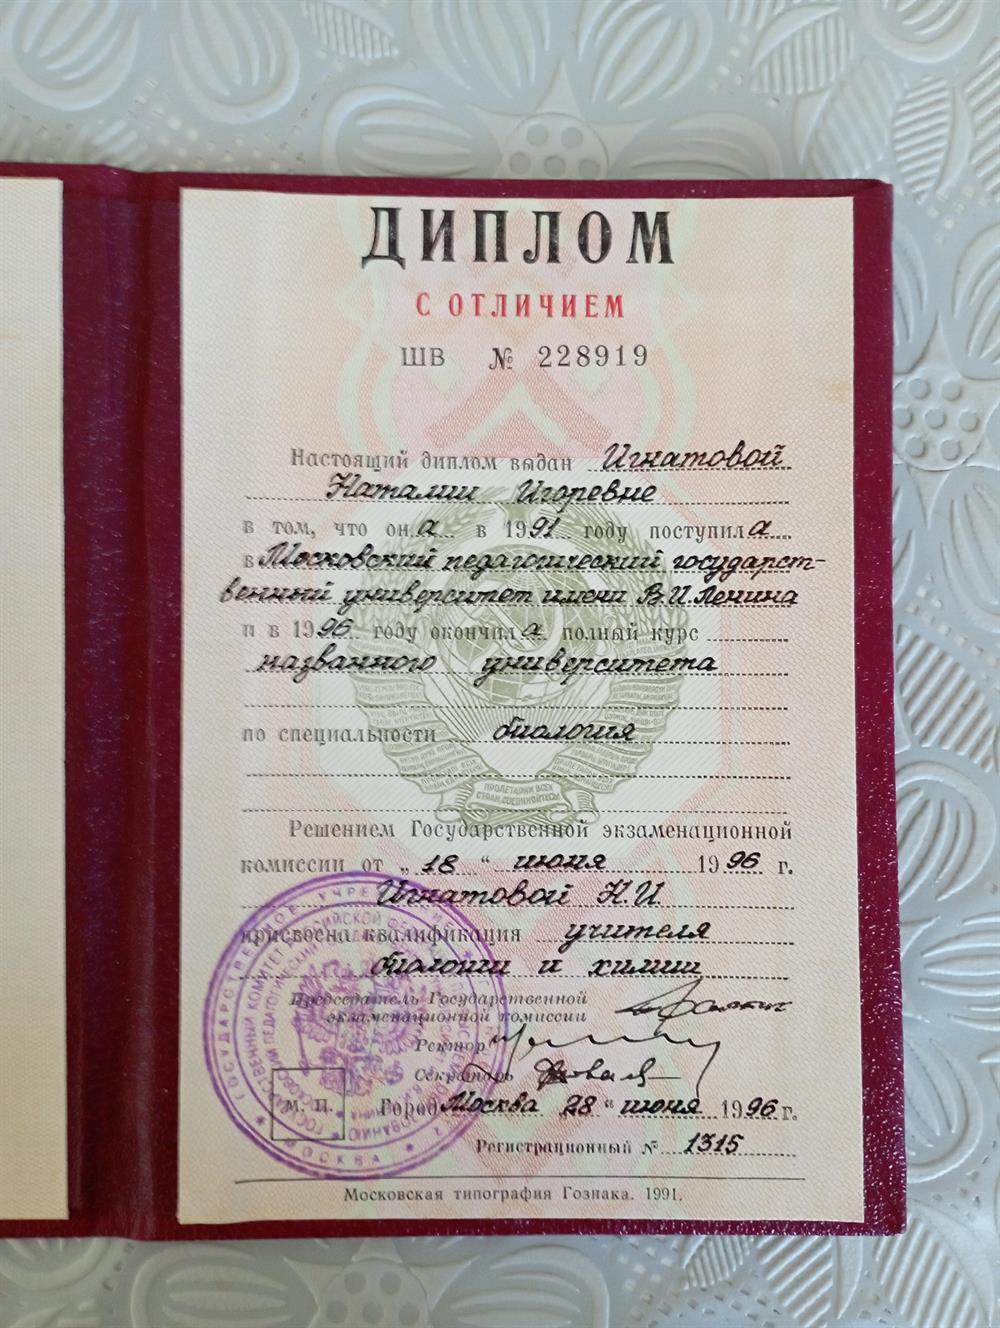 ДИПЛОМ
С ОТЛИЧИЕМ
ШВ № 228919
Настоящий диплом выдан Игнатовой
Наталии Игоревне
в том, что она в 1991 году поступила
в Московский педагогический государст-
венный университет имени В.И. Ленина
и в 1996 году окончила полный курс
названного университета
по специальности биология
ПРОЛЕТАРИИ ВСЕХ
СТРАН, СОЕДИНЯЙТЕСЬ!
Решением Государственной экзаменационной
комиссии от „18“ июня 1996 г.
Игнатовой Н.И.
присвоена квалификация учителя
биологии и химии
Председатель Государственной
экзаменационной комиссии
Ректор
Секретарь
М. П. Город Москва 28 “ июня 1996 г.
Регистрационный № 1315
МОСКВА
Московская типография Гознака. 1991.